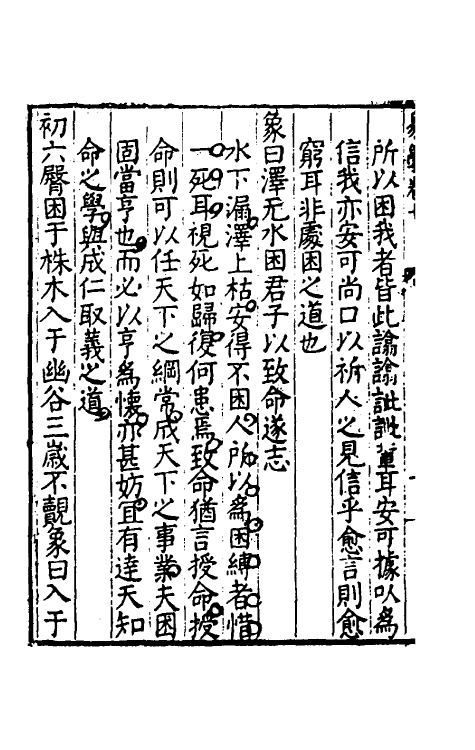 所以困我者皆此諭諭訿訿輩耳安可據以為
信我亦安可尚口以祈人之見信乎愈言則愈
窮耳非處困之道也
象曰澤无水困君子以致命遂志
水下漏澤上枯安得不困人所以為困縛者惜
一死耳視死如歸復何患焉致命猶言授命授
命則可以任天下之綱常成天下之事業夫困
固當亨也而必以亨為懷亦甚妨宜有達天知
命之學與成仁取義之道
初六臀困于株木入于幽谷三歲不覿象曰入于